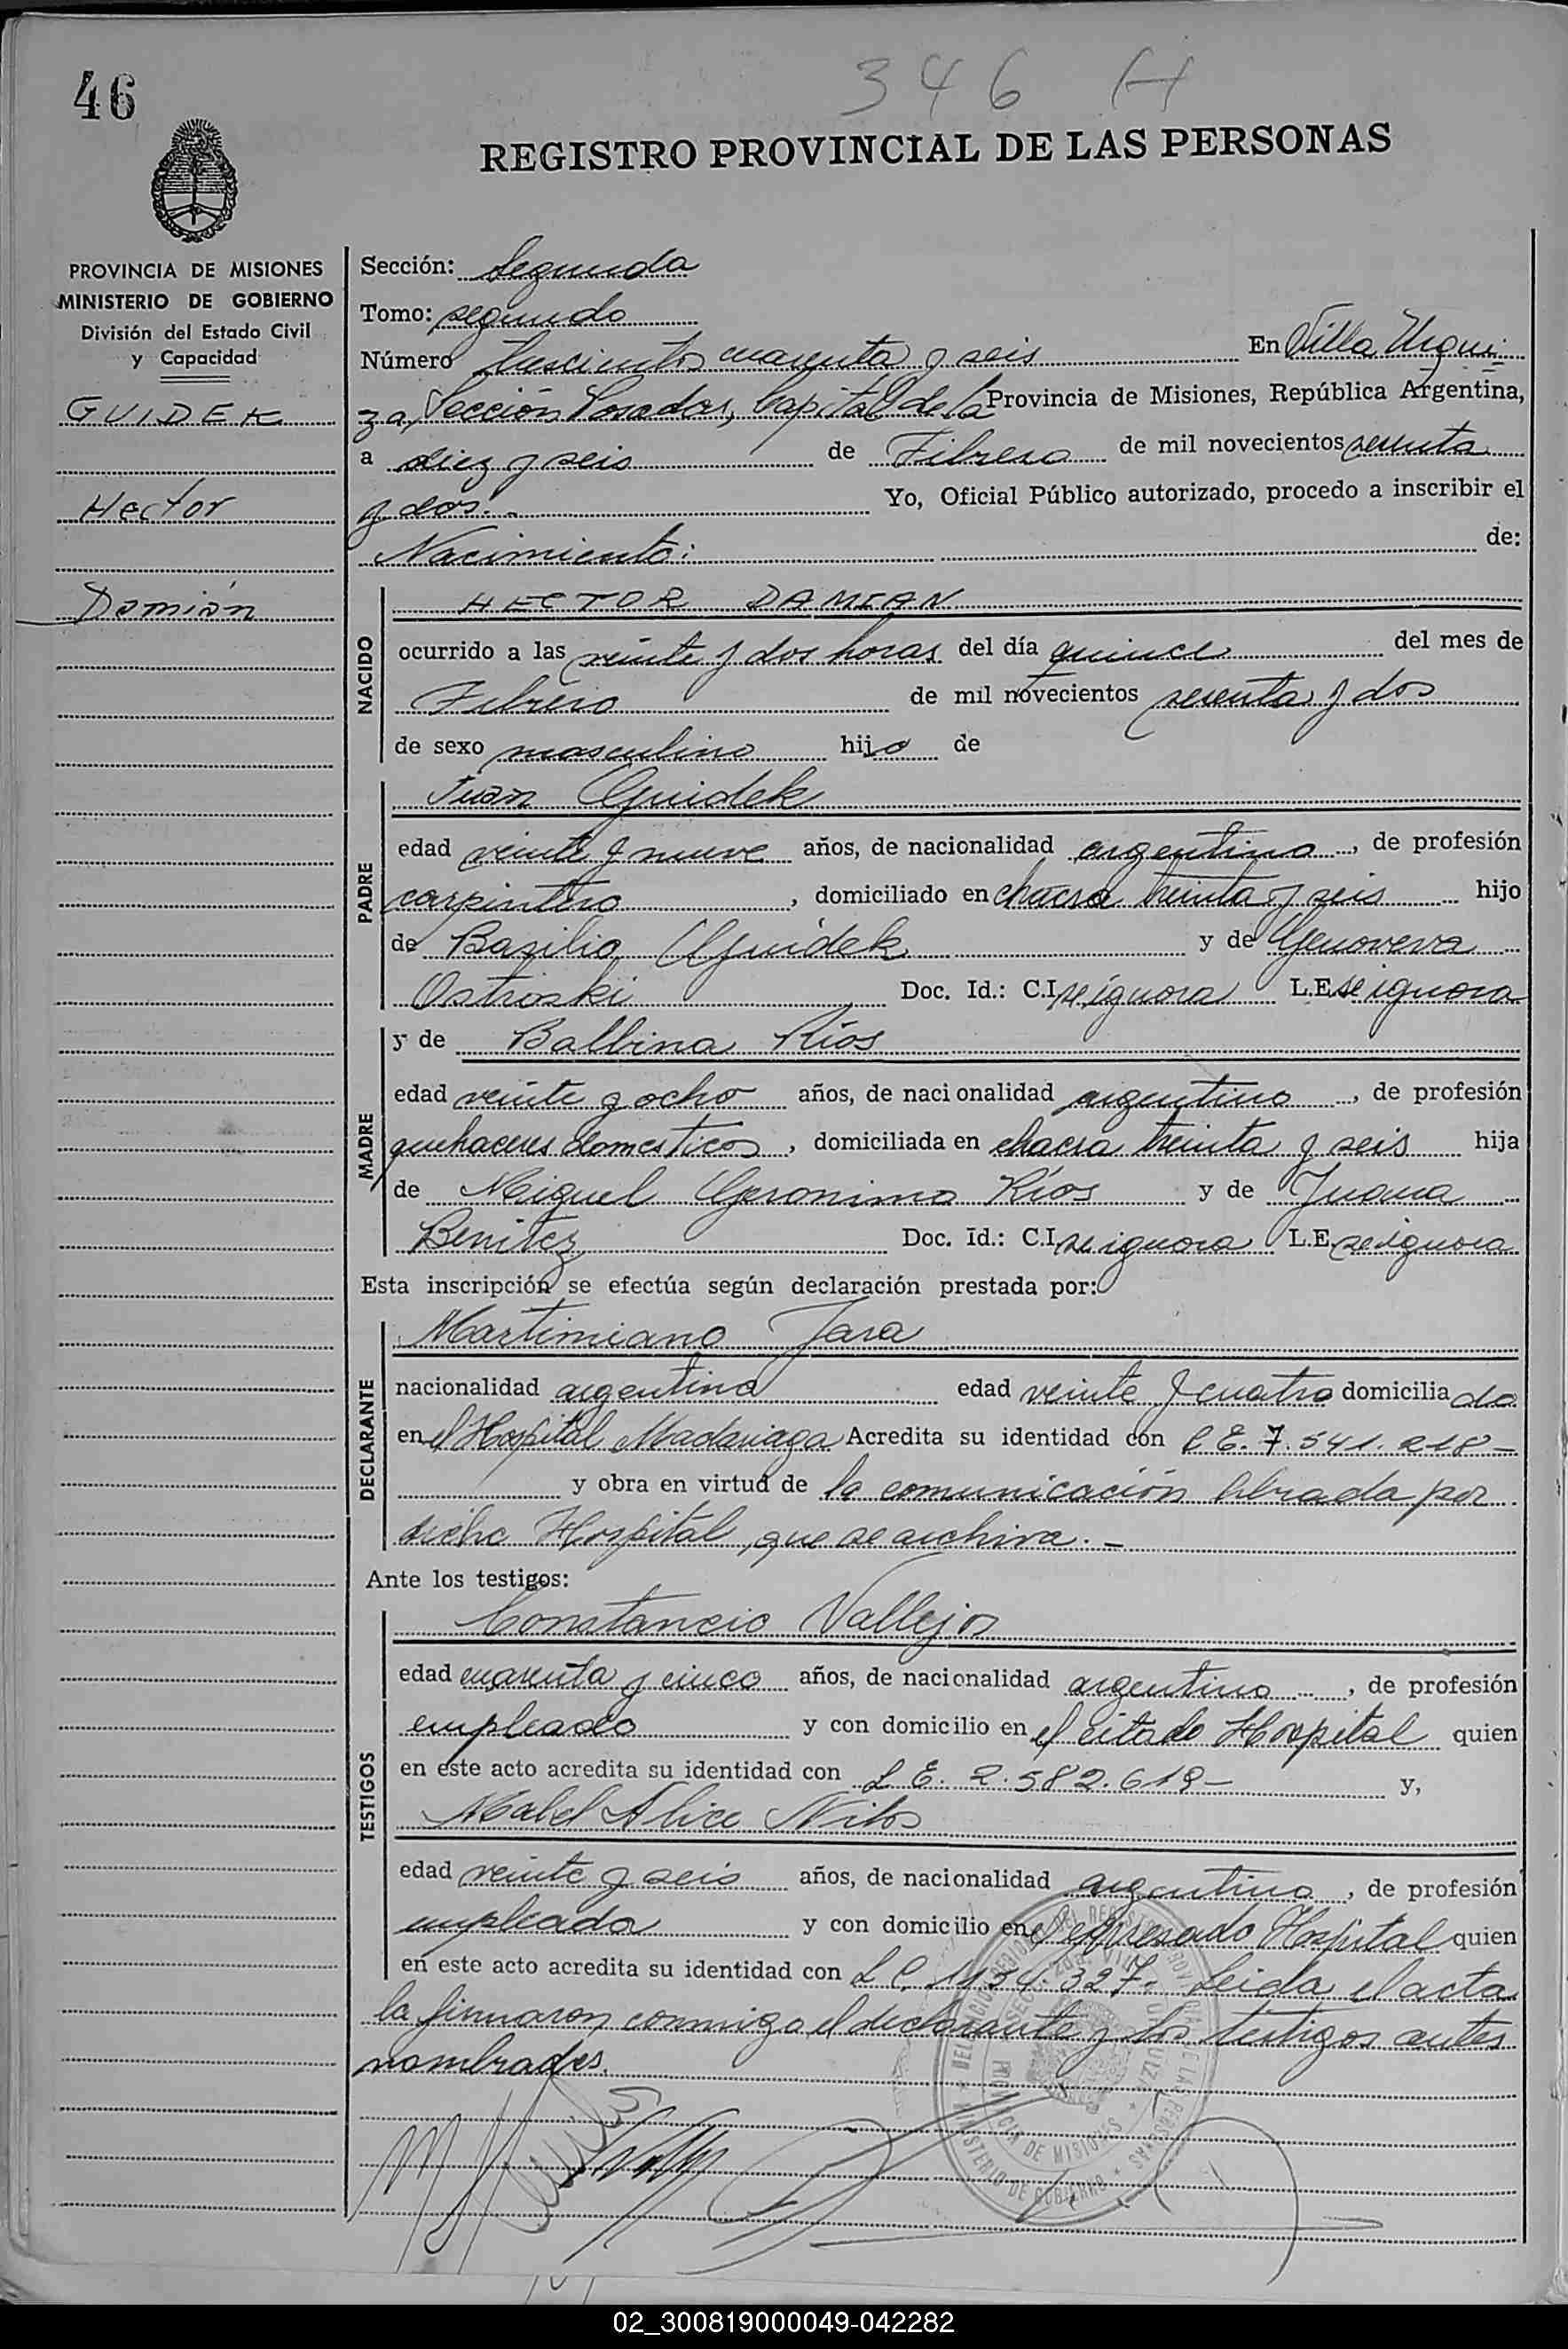 46
346 H
REGISTRO PROVINCIAL DE LAS PERSONAS
PROVINCIA DE MISIONES
MINISTERIO DE GOBIERNO
División del Estado Civil
y Capacidad
GUIDEK
Hector
Damián
Sección: Segunda
Tomo: segundo
Número trescientos cuarenta y seis En Villa Urqui
za, Sección Posadas, Capital de la Provincia de Misiones, República Argentina,
a diez y seis de Febrero de mil novecientos setenta
y dos.- Yo, Oficial Público autorizado, procedo a inscribir el
Nacimiento: de:
NACIDO
HECTOR DAMIAN
ocurrido a las veinte y dos horas del día quince del mes de
Febrero de mil novecientos setenta y dos
de sexo masculino hijo de
PADRE
Juan Guidek
edad veinte y nueve años, de nacionalidad argentino, de profesión
carpintero, domiciliado en chacra treinta y seis hijo
de Basilio Guidek y de Genoveva
Ostroski Doc. Id.: C.I. se ignora L.E. se ignora
MADRE
y de Balbina Ríos
edad veinte y ocho años, de nacionalidad argentina, de profesión
quehaceres domesticos, domiciliada en chacra treinta y seis hija
de Miguel Geronimo Ríos y de Juana
Benitez Doc. Id.: C.I. se ignora L.E. se ignora
Esta inscripción se efectúa según declaración prestada por:
DECLARANTE
Martimiano Jara
nacionalidad argentina edad veinte y cuatro domiciliado
en el Hospital Madariaga Acredita su identidad con L.E. 7.541.218-
y obra en virtud de la comunicación librada por
dicho Hospital, que se archiva.-
Ante los testigos:
TESTIGOS
Constancio Vallejos
edad cuarenta y cinco años, de nacionalidad argentino, de profesión
empleado y con domicilio en el citado Hospital quien
en este acto acredita su identidad con L E. 2.582.618- y,
Mabel Alice
edad veinte y seis años, de nacionalidad argentina, de profesión
empleada y con domicilio en el expresado Hospital quien
en este acto acredita su identidad con L C. Leida el acta
la firmaron conmigo el declarante y los testigos antes
nombrados.
PROVINCIA DE MISIONES
MINISTERIO DE GOBIERNO
02_300819000049-042282